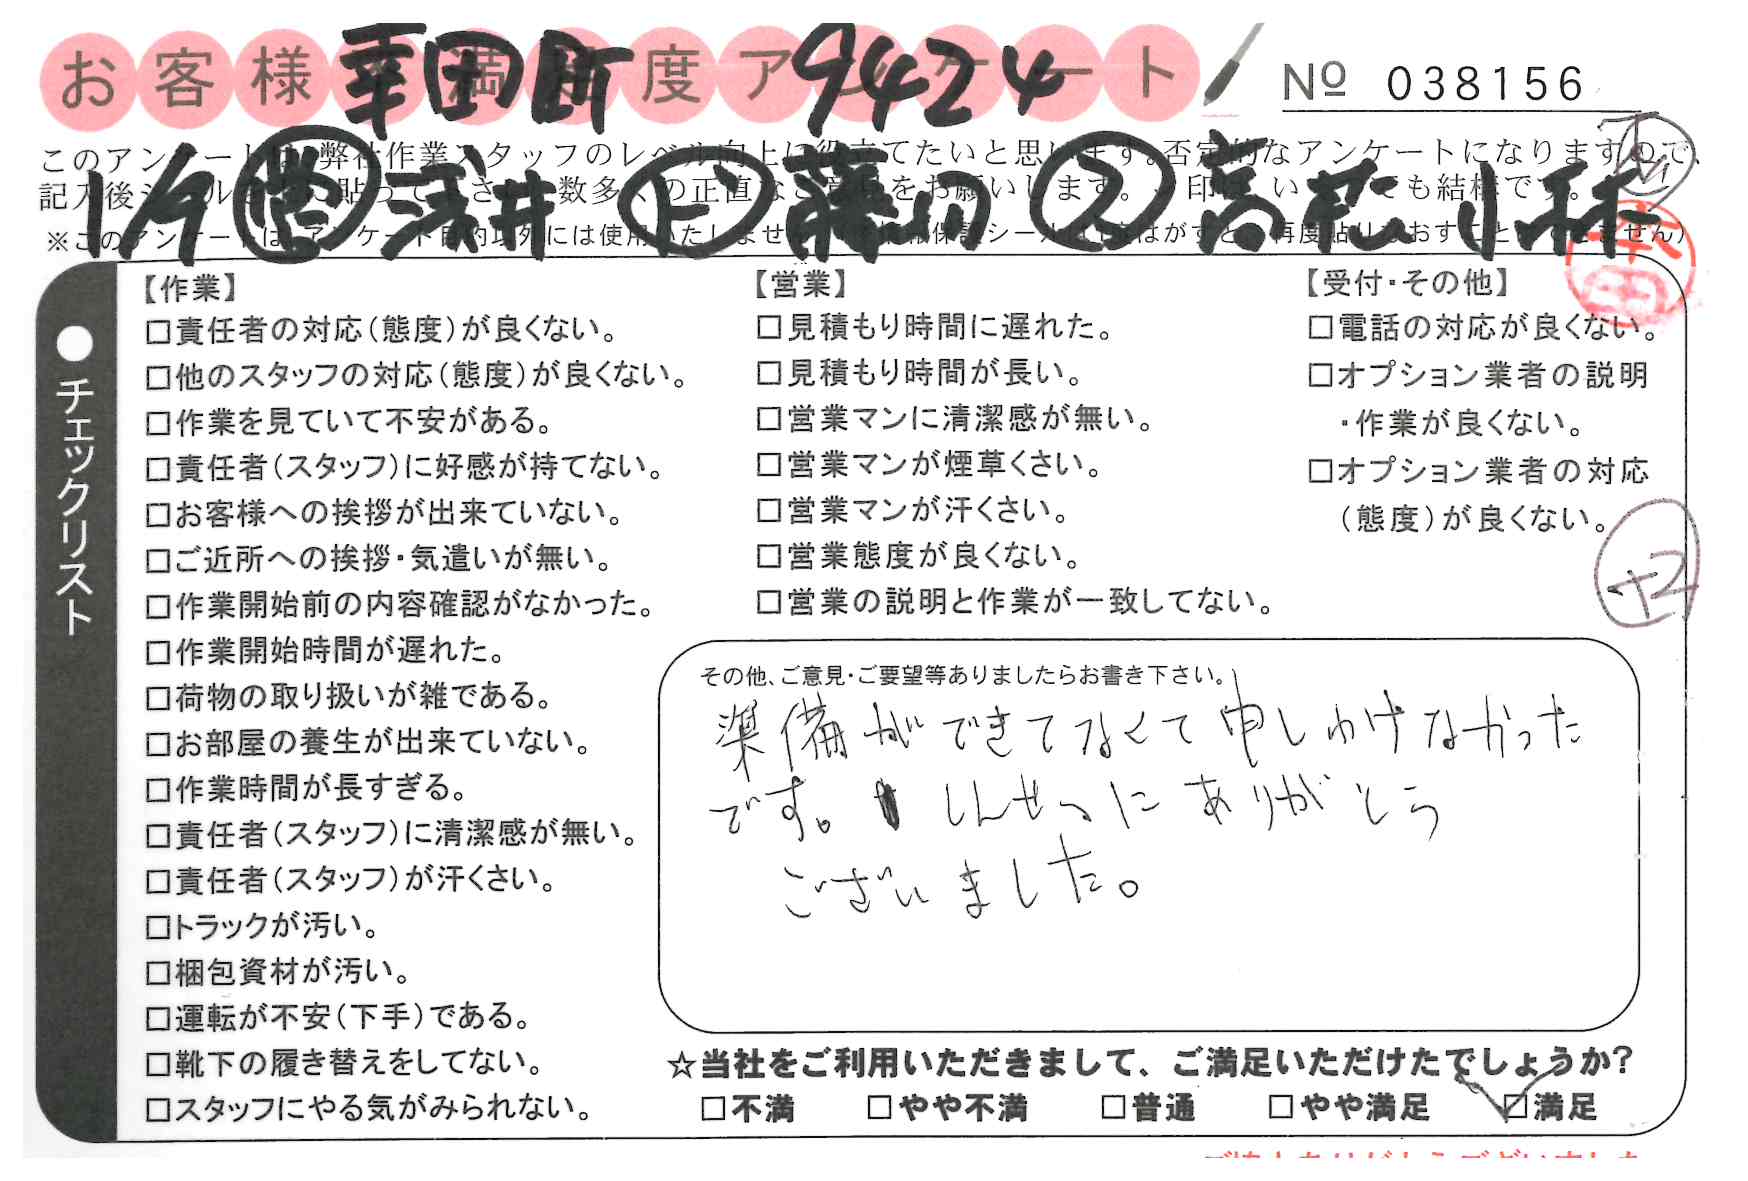 お客様満足度アンケート
幸田町 9424
№ 038156
このアンケートは、弊社作業スタッフのレベル向上に役立てたいと思います。否定的なアンケートになりますので、
記入後シールを 貼って 数多くの正直なご意見をお願いします。 印は、いくつでも結構です。
1/9 浅井 藤田 高尾 小林
※このアンケートは、アンケート目的以外には使用いたしません 保護シールは1度はがすと、再度貼りなおすことはできません)
●チェックリスト
【作業】
□責任者の対応(態度)が良くない。
□他のスタッフの対応(態度)が良くない。
□作業を見ていて不安がある。
□責任者(スタッフ)に好感が持てない。
□お客様への挨拶が出来ていない。
□ご近所への挨拶・気遣いが無い。
□作業開始前の内容確認がなかった。
□作業開始時間が遅れた。
□荷物の取り扱いが雑である。
□お部屋の養生が出来ていない。
□作業時間が長すぎる。
□責任者(スタッフ)に清潔感が無い。
□責任者(スタッフ)が汗くさい。
□トラックが汚い。
□梱包資材が汚い。
□運転が不安(下手)である。
□靴下の履き替えをしてない。
□スタッフにやる気がみられない。
【営業】
□見積もり時間に遅れた。
□見積もり時間が長い。
□営業マンに清潔感が無い。
□営業マンが煙草くさい。
□営業マンが汗くさい。
□営業態度が良くない。
□営業の説明と作業が一致してない。
【受付・その他】
□電話の対応が良くない。
□オプション業者の説明
・作業が良くない。
□オプション業者の対応
(態度)が良くない。
+2
その他、ご意見・ご要望等ありましたらお書き下さい。
準備ができてなくて申しわけなかった
です。しんせつにありがとう
ございました。
☆当社をご利用いただきまして、ご満足いただけたでしょうか?
□不満 □やや不満 □普通 □やや満足 ☑満足
ご協力ありがとうございました